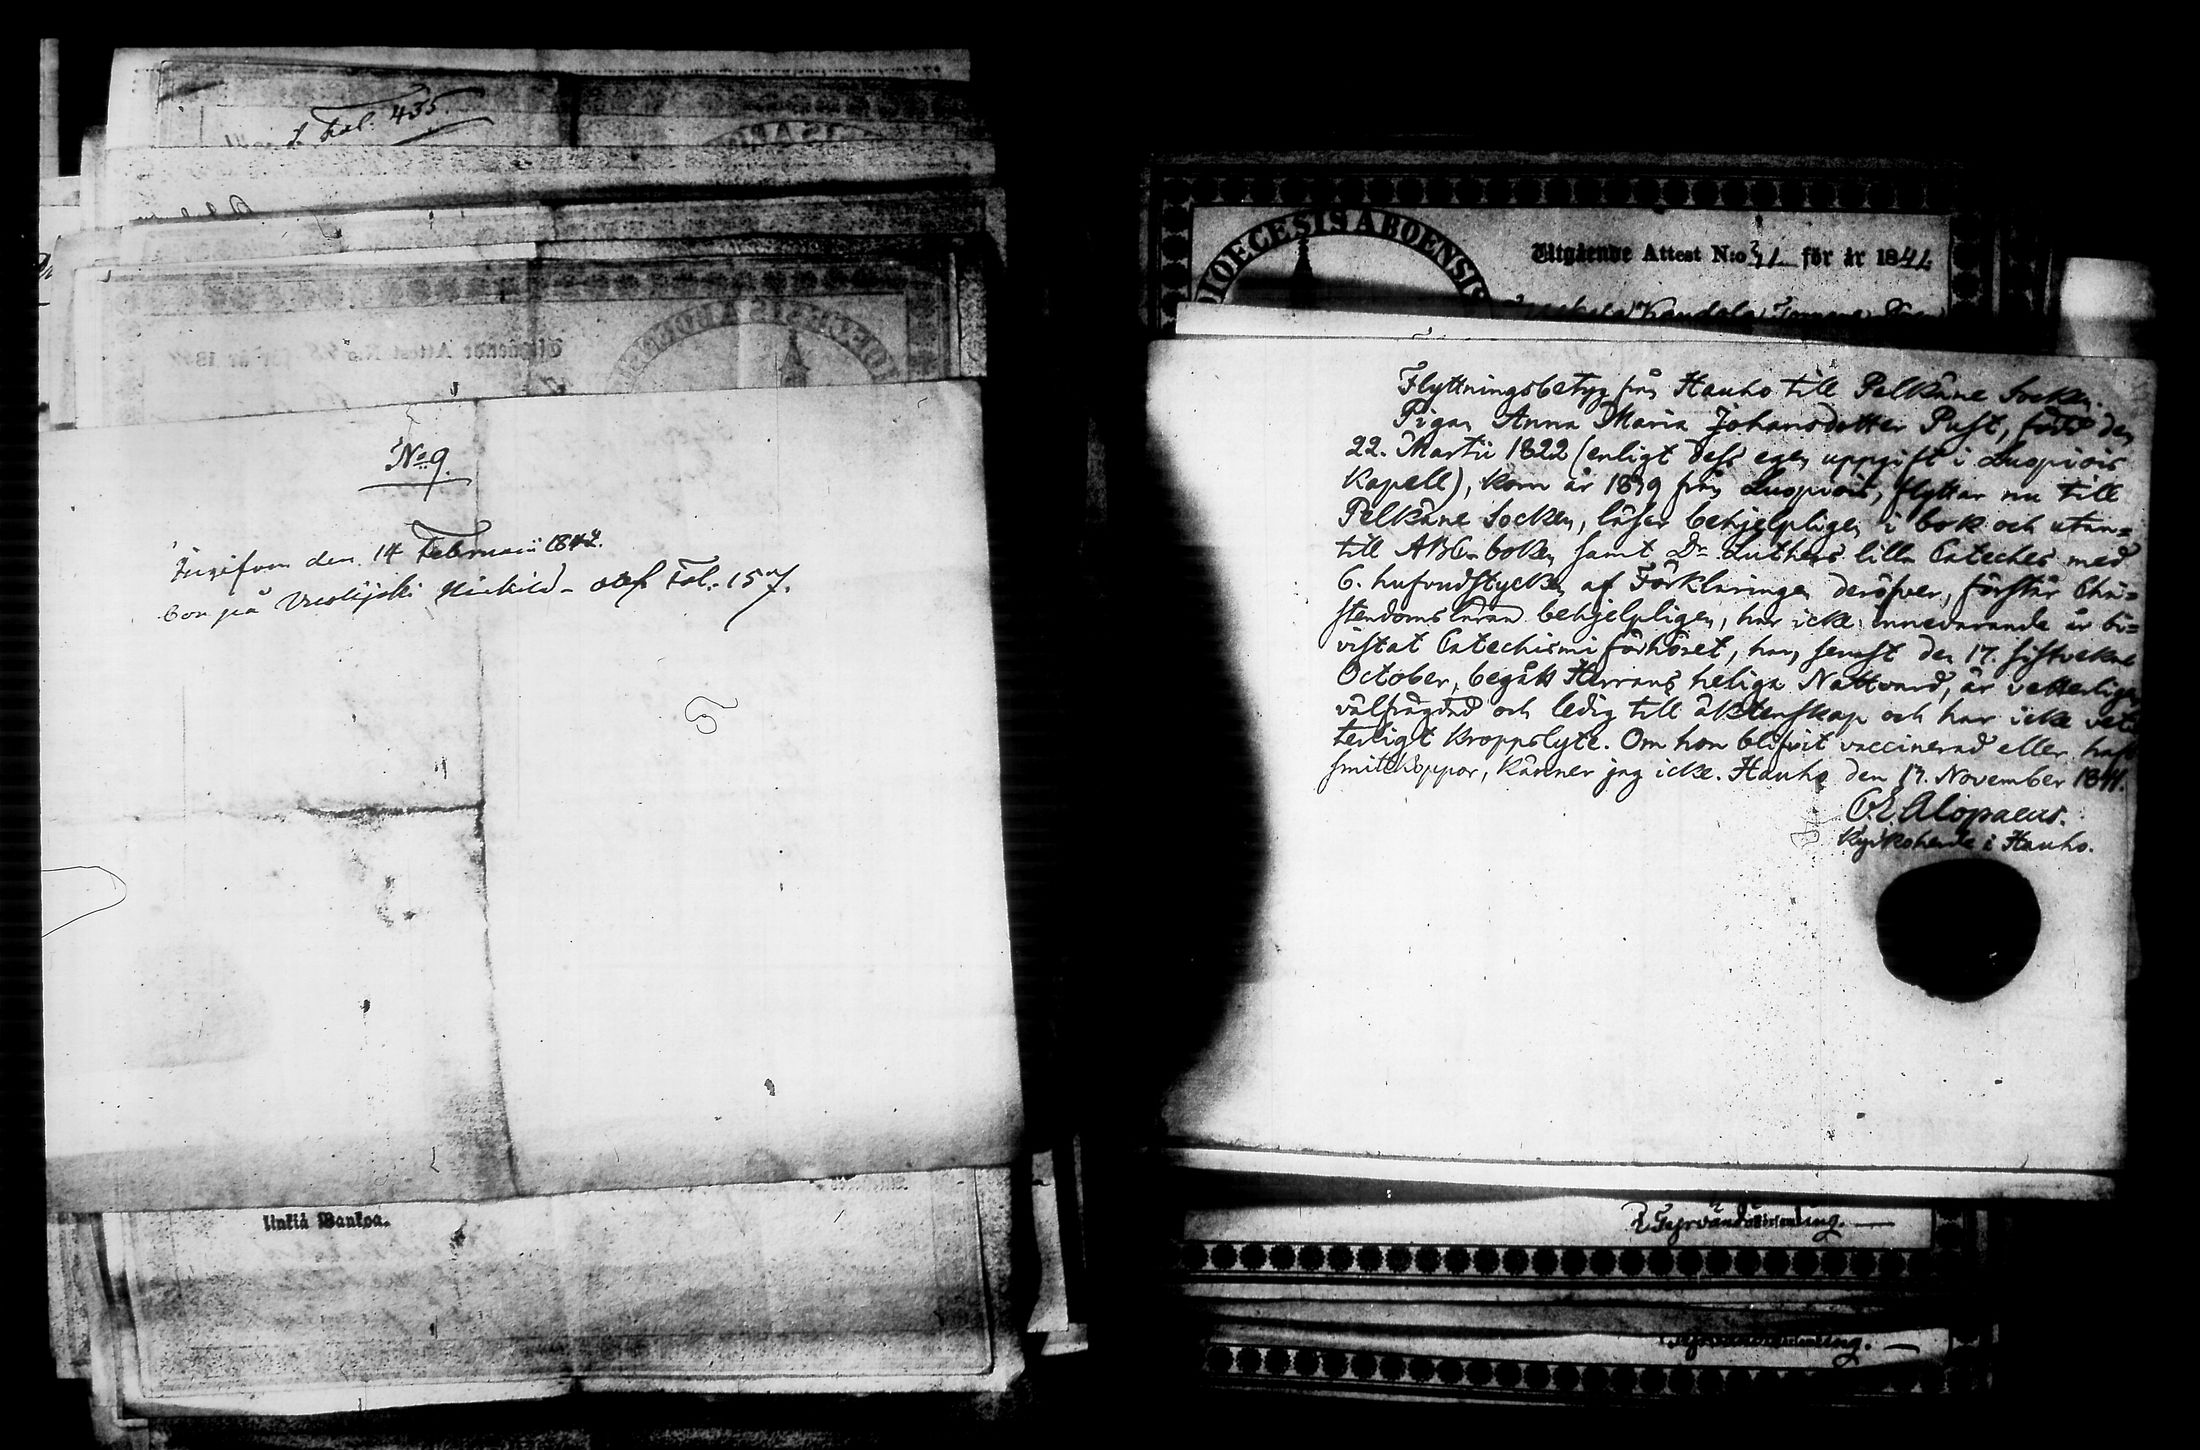 Fol: 435.
N:o 9.
Ingifven den 14 Februarii 1842.
bor på Fol. 157.
linkiä Wankoa.
DIOECESIS ABOENSIS
Utgående Attest N:o 31 för år 1841
Flyttningsbetyg från Hauho till Pelkäne Socken.
Pigan Anna Maria Johansdotter Pust, född den
22. Martii 1822 (enligt dess egen uppgift i Luopiois
Kapell), kom år 1839 från Luopiois, flyttar nu till
Pelkäne Socken, läser behjelpligen i bok och utan-
till ABC-boken samt Dr Luthers lilla Cateches med
6. hufvudstycken af Förklaringen deröfver, förstår Chri-
stendomsläran behjelpligen, har icke innevarande år bi-
vistat Catechismi förhöret, har senast den 17. sistvekne
October, begått Herrans heliga Nattvard, är vetterligen
välfrägdad och ledig till äktenskap och har icke vet-
terligt kroppslyte. Om hon blifvit vaccinerad eller haft
smittkoppor, känner jag icke. Hauho den 17. November 1841.
C.E. Alopaeus.
Kyrkoherde i Hauho.